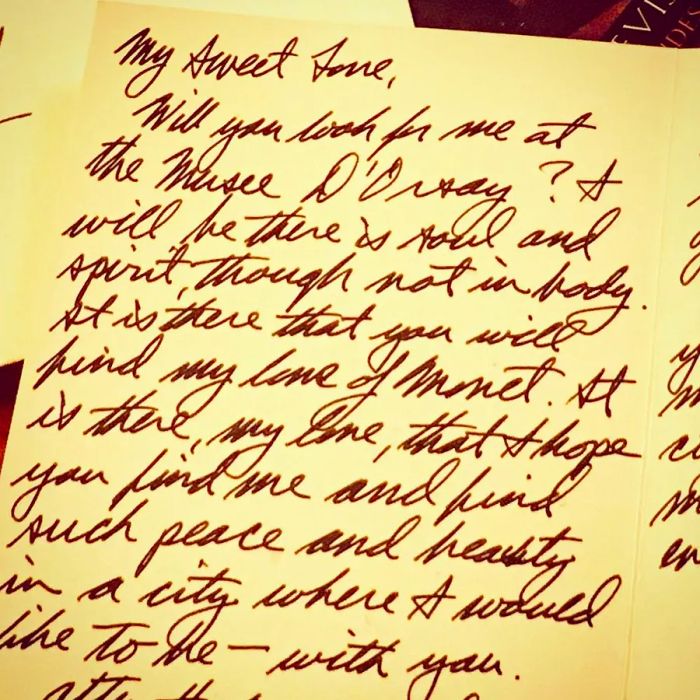 My Sweet Love,
Will you look for me at
the Musee D'Orsay? I
will be there is soul and
spirit, though not in body.
It is there that you will
find my love of Monet. It
is there, my love, that I hope
you find me and find
such peace and beauty
in a city where I would
like to be — with you.